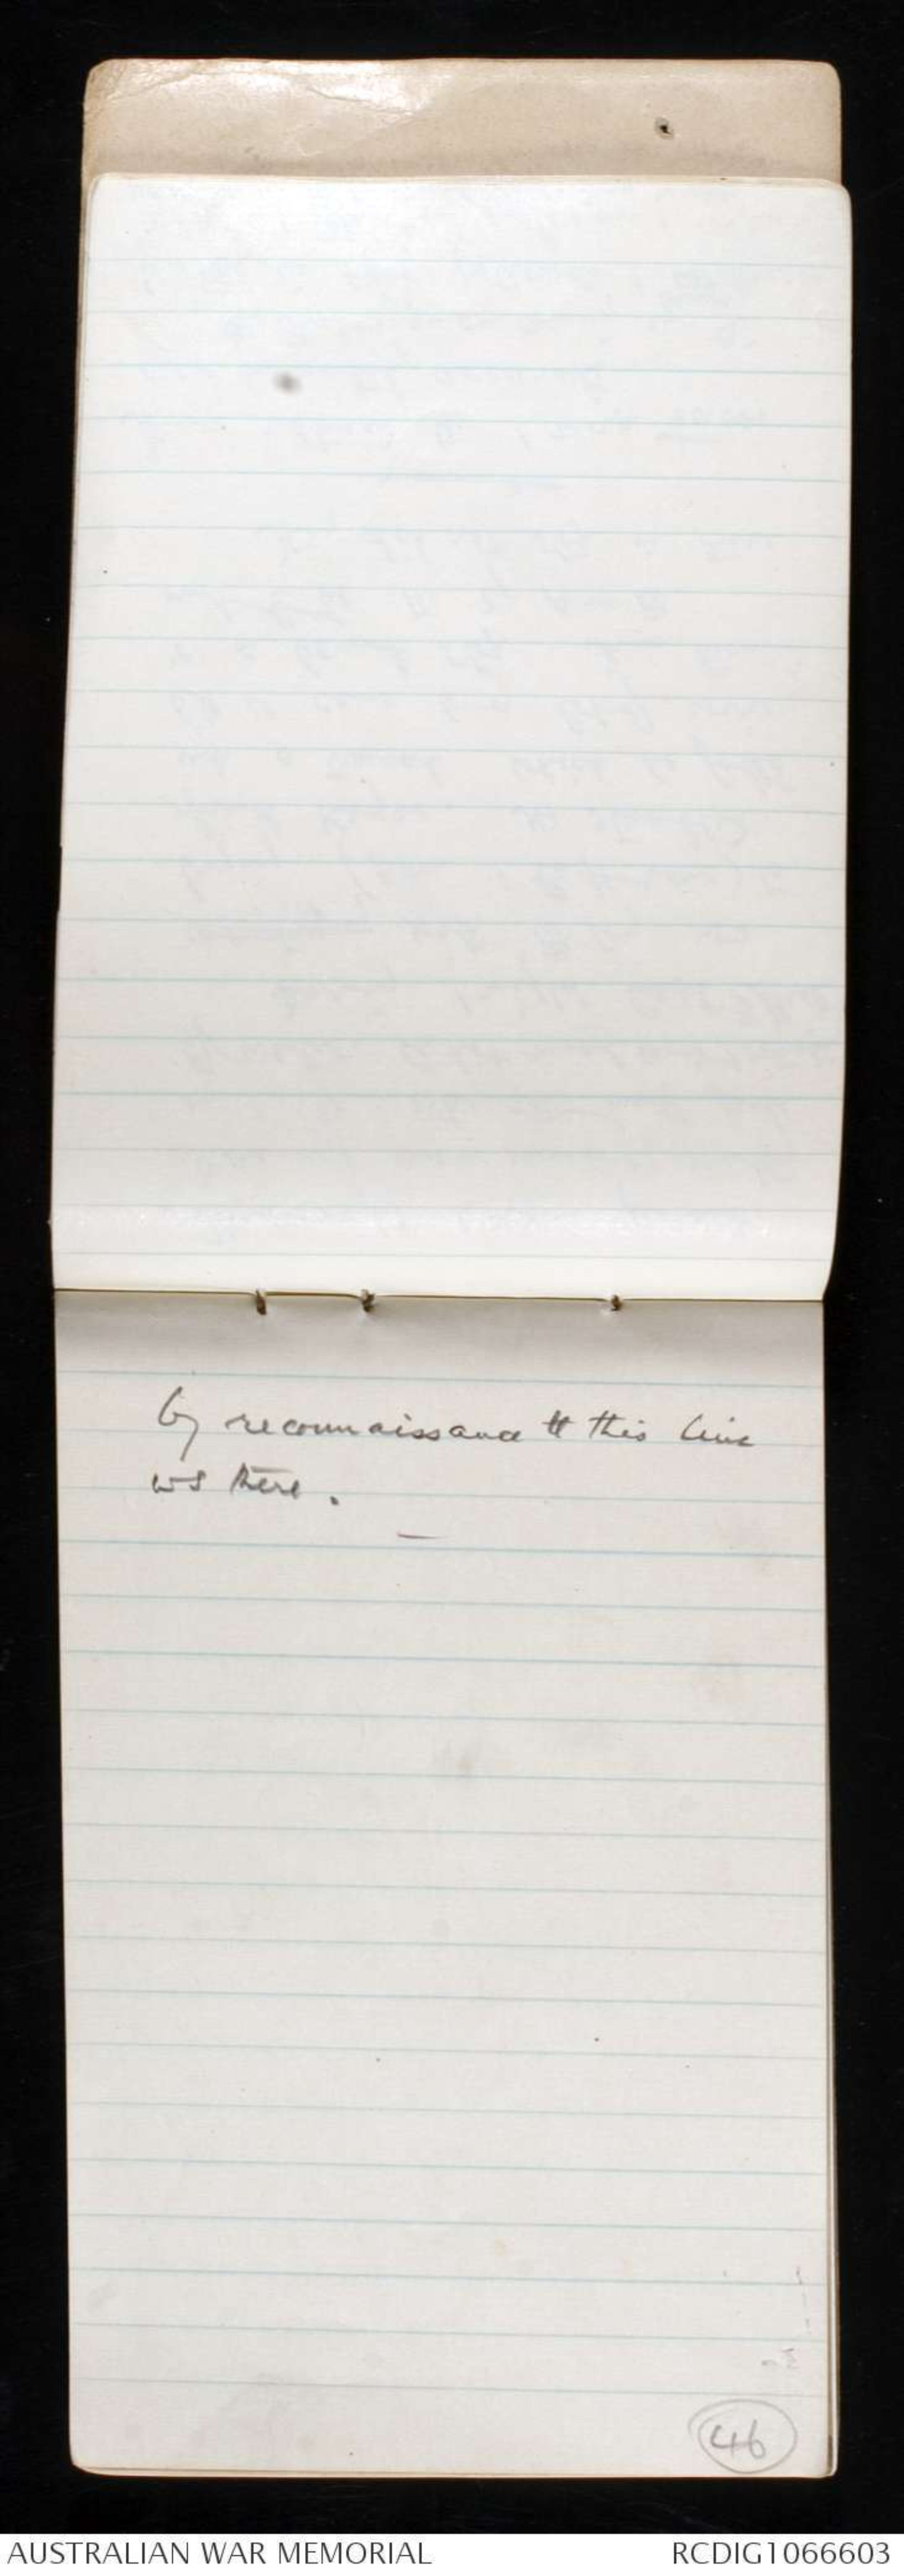 by reconnaissance tt this line
ws there.
46
AUSTRALIAN WAR MEMORIAL
RCDIG1066603